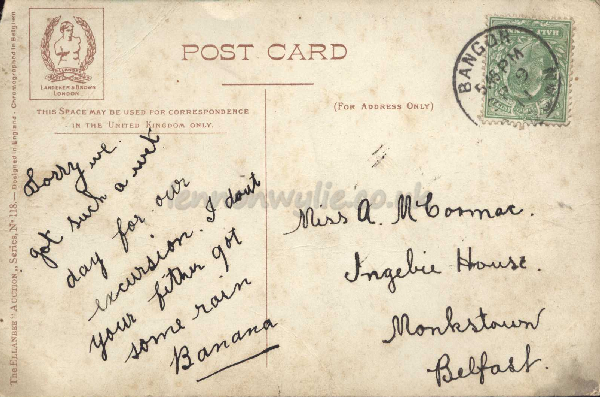 POST CARD
LANDEKER & BROWN
LONDON.
THIS SPACE MAY BE USED FOR CORRESPONDENCE
IN THE UNITED KINGDOM ONLY.
(FOR ADDRESS ONLY)
BANGOR
PM
9
The ELLANBEE "AUCTION" Series, No 118.— Designed in England - Chromographed in Belgium
Sorry we
got such a wet
day for our
excursion. I don't
your father got
some rain
Banana
Miss A. McCormac.
Ingebie House.
Monkstown
Belfast.
lennonwylie.co.uk